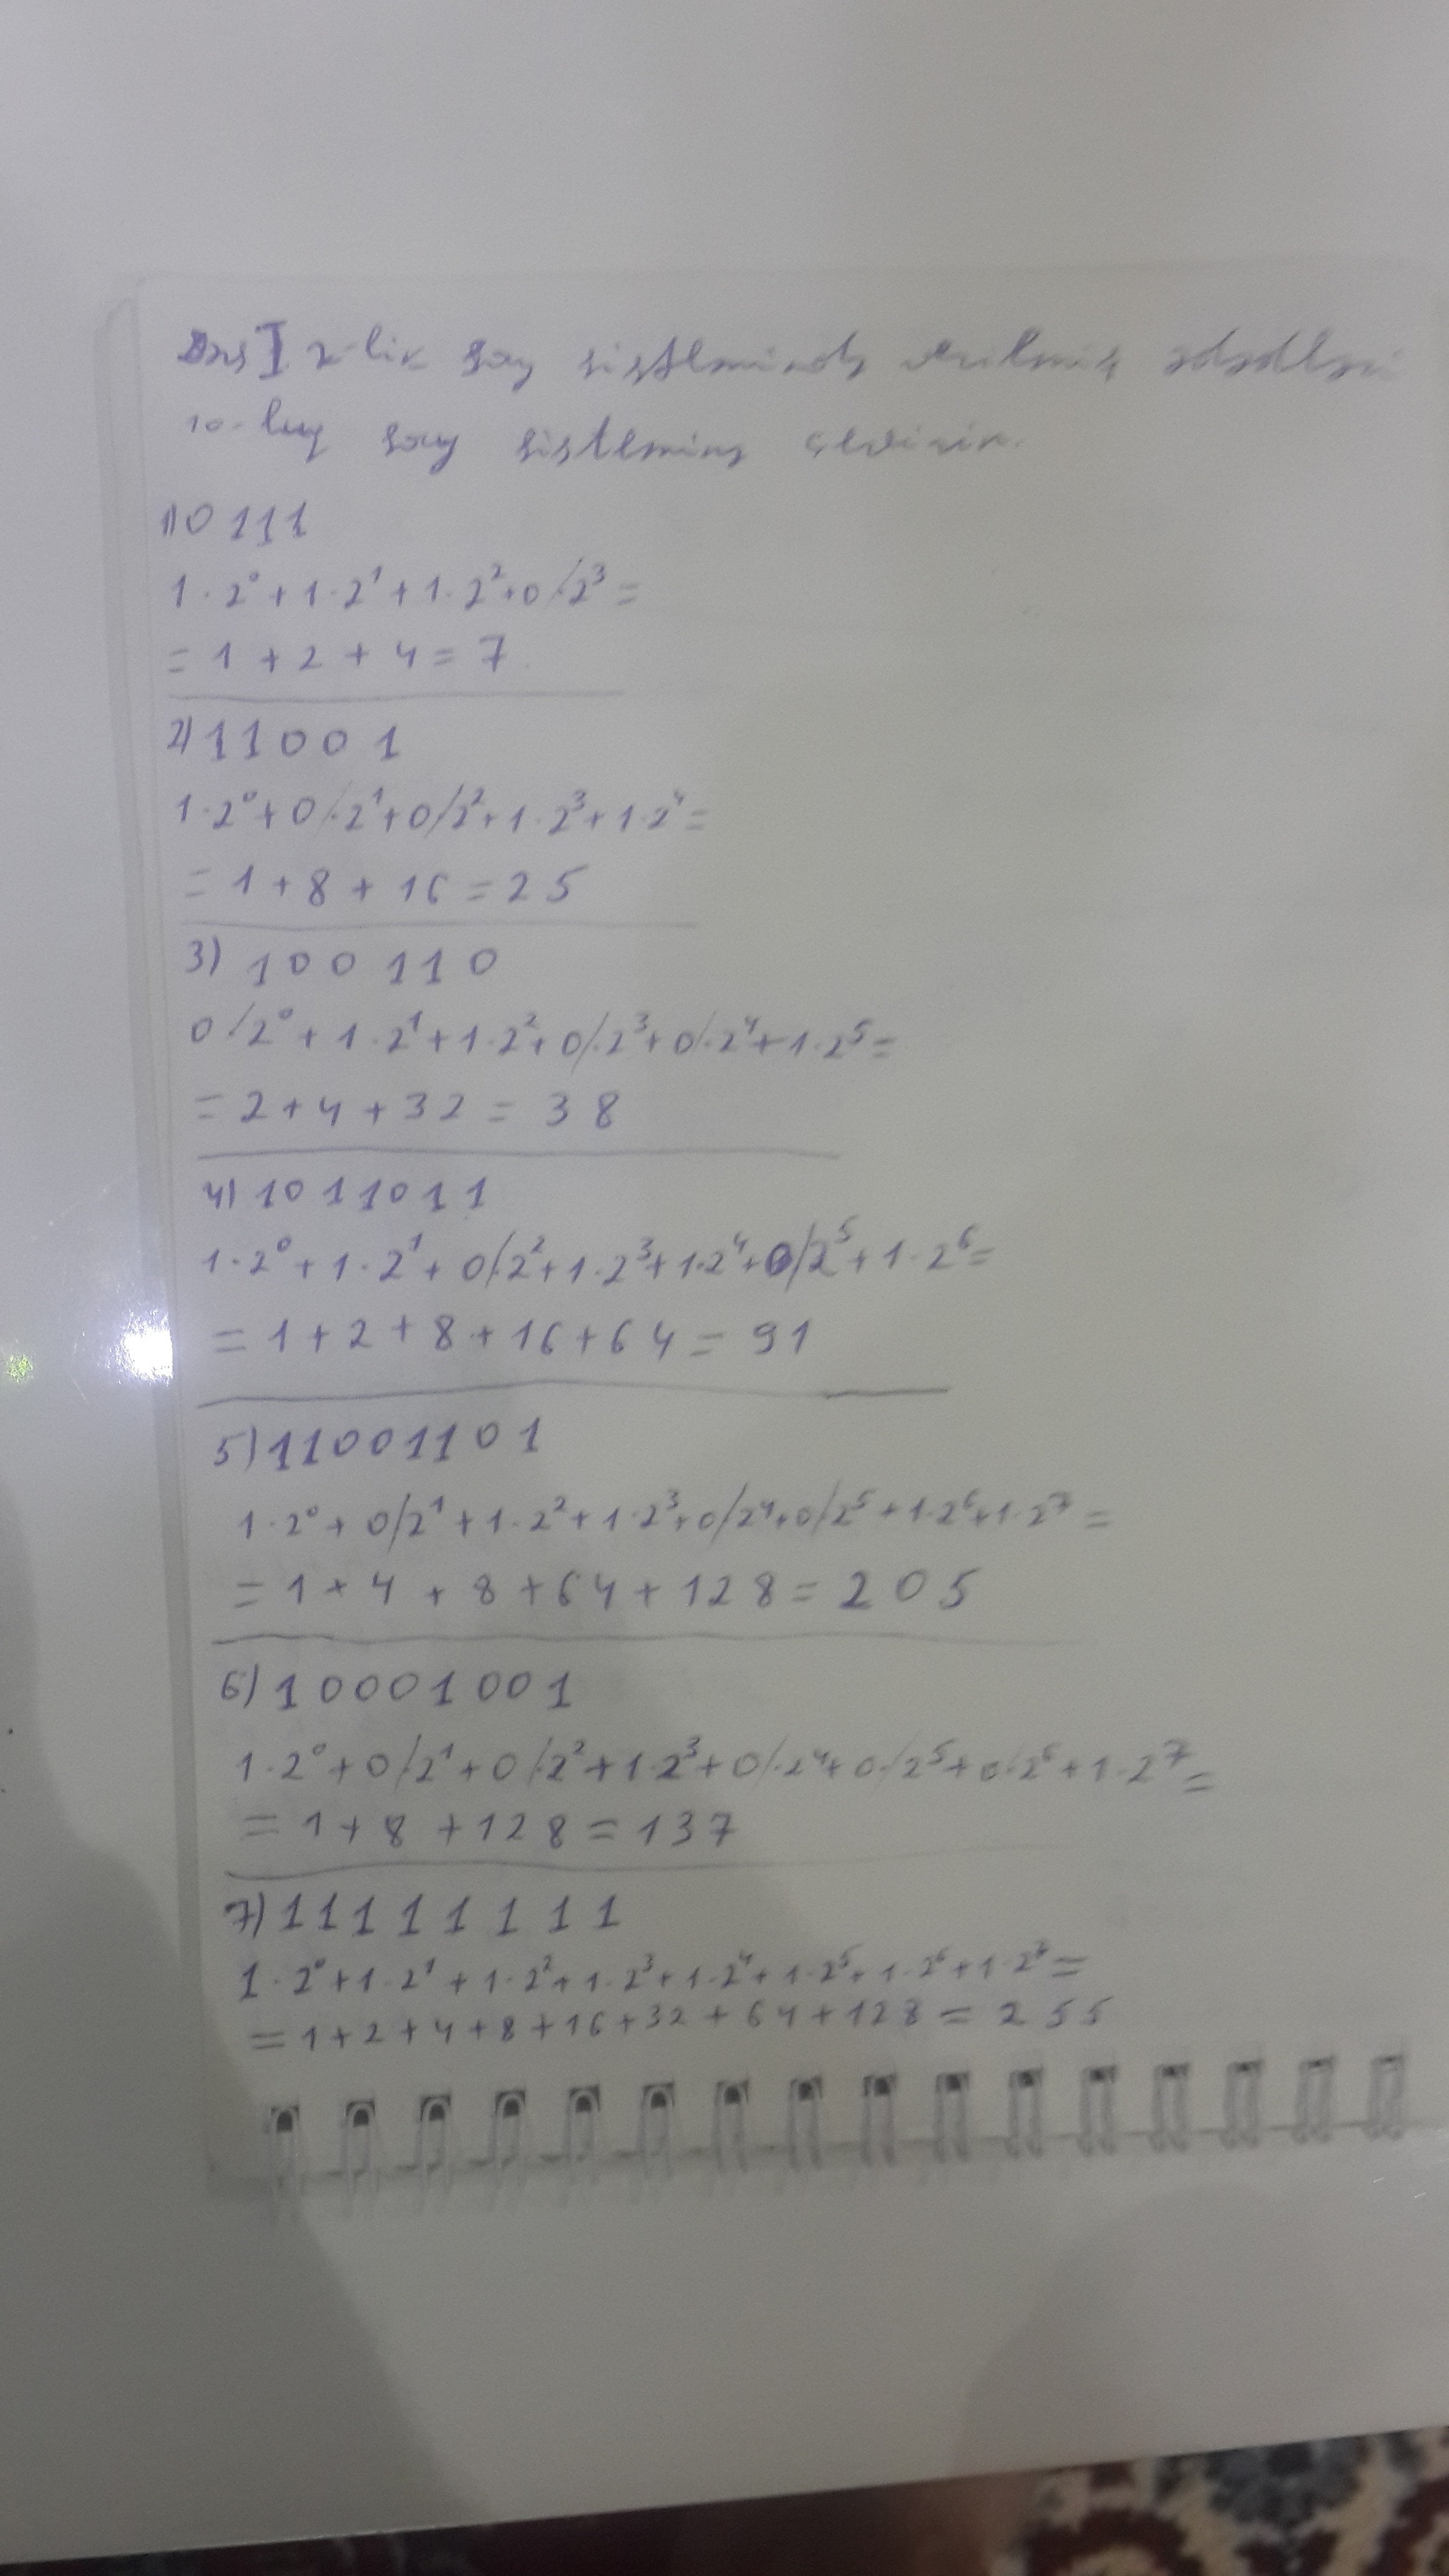 I 2-lik say sistemində verilmiş ədədləri
10-luq say sisteminə çevirin.
1) 0111
1·2⁰+1·2¹+1·2²+0·2³=
=1+2+4=7
2) 11001
1·2⁰+0·2¹+0·2²+1·2³+1·2⁴=
=1+8+16=25
3) 100110
0·2⁰+1·2¹+1·2²+0·2³+0·2⁴+1·2⁵=
=2+4+32=38
4) 1011011
1·2⁰+1·2¹+0·2²+1·2³+1·2⁴+0·2⁵+1·2⁶=
=1+2+8+16+64=91
5) 11001101
1·2⁰+0·2¹+1·2²+1·2³+0·2⁴+0·2⁵+1·2⁶+1·2⁷=
=1+4+8+64+128=205
6) 10001001
1·2⁰+0·2¹+0·2²+1·2³+0·2⁴+0·2⁵+0·2⁶+1·2⁷=
=1+8+128=137
7) 11111111
1·2⁰+1·2¹+1·2²+1·2³+1·2⁴+1·2⁵+1·2⁶+1·2⁷=
=1+2+4+8+16+32+64+128=255